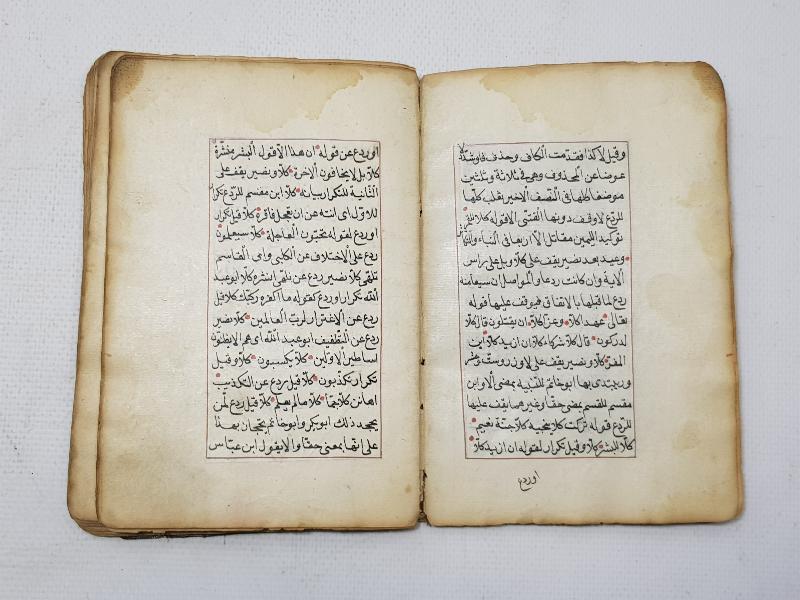 وقيل لا كذا فقدمت الكاف وحذف فاوشددلا
عوضا عن المحذوف وهي في ثلاثة وثلثين
موضعا كلها في النصف الاخير يغلب كلها
للردع لا وقف دونها القتبى الا قوله كلا للردع
توكيد اللهين مقاتل الا اربعا في النباء والتكاثر
وعيد بعد نصير يقف على كلا وبلى على راس
الاية وان كانت ردعا والمواصل ان سبقا منه
ردع لما قبلها بالاتفاق فيوقف عليها قوله
تعالى عهدا كلا وعزا كلا ان يقتلون قال كلا
لمدركون قال كلا شركاء كلا ان ازيد كلا اين
المفر كلا ونصير يقف على لاوزر
وربيتدى بها ابو حاتم للتنبيه بمعنى الا وابن
مقسم للقسم بمعنى حقا وغيرهما يقف عليها
للردع قوله تركت كلا ينجيه كلا جنة نعيم
كلا للبشر كلا وقيل تكرار لقوله ان ازيد كلا
او ردع
او ردع عن قوله ان هذا الا قول البشر منشرة
كلا بل لا يخافون الاخرة كلا ونصير يقف على
الثانية للتكرار بيانه كلا ابن مقسم للردع تكرار
للاول اى انته عن ان تفعل فاقرة كلا وقيل تكرار
او ردع لقوله تحبون العاجلة كلا سيعلمون
ردع على الاختلاف عن الكلبى وابى القاسم
تلهى كلا نصير ردع عن تلهى انشره كلا ابو عبد
الله تكرار او ردع كقوله ما اكفره ركبك كلا قيل
ردع عن الاغترار لرب العالمين كلا نصير
ردع عن التطفيف ابو عبد الله اى هم لا يظنون
اساطير الاولين كلا يكسبون كلا وقيل
تكرار تكذبون كلا قيل ردع عن التكذيب
اهانن كلا جما كلا مالم يعلم كلا قيل ردع لمن
يجحد ذلك ابو بكر وابو حاتم يحتجان بهذا
على انها بمعنى حقا والا يقول ابن عباس